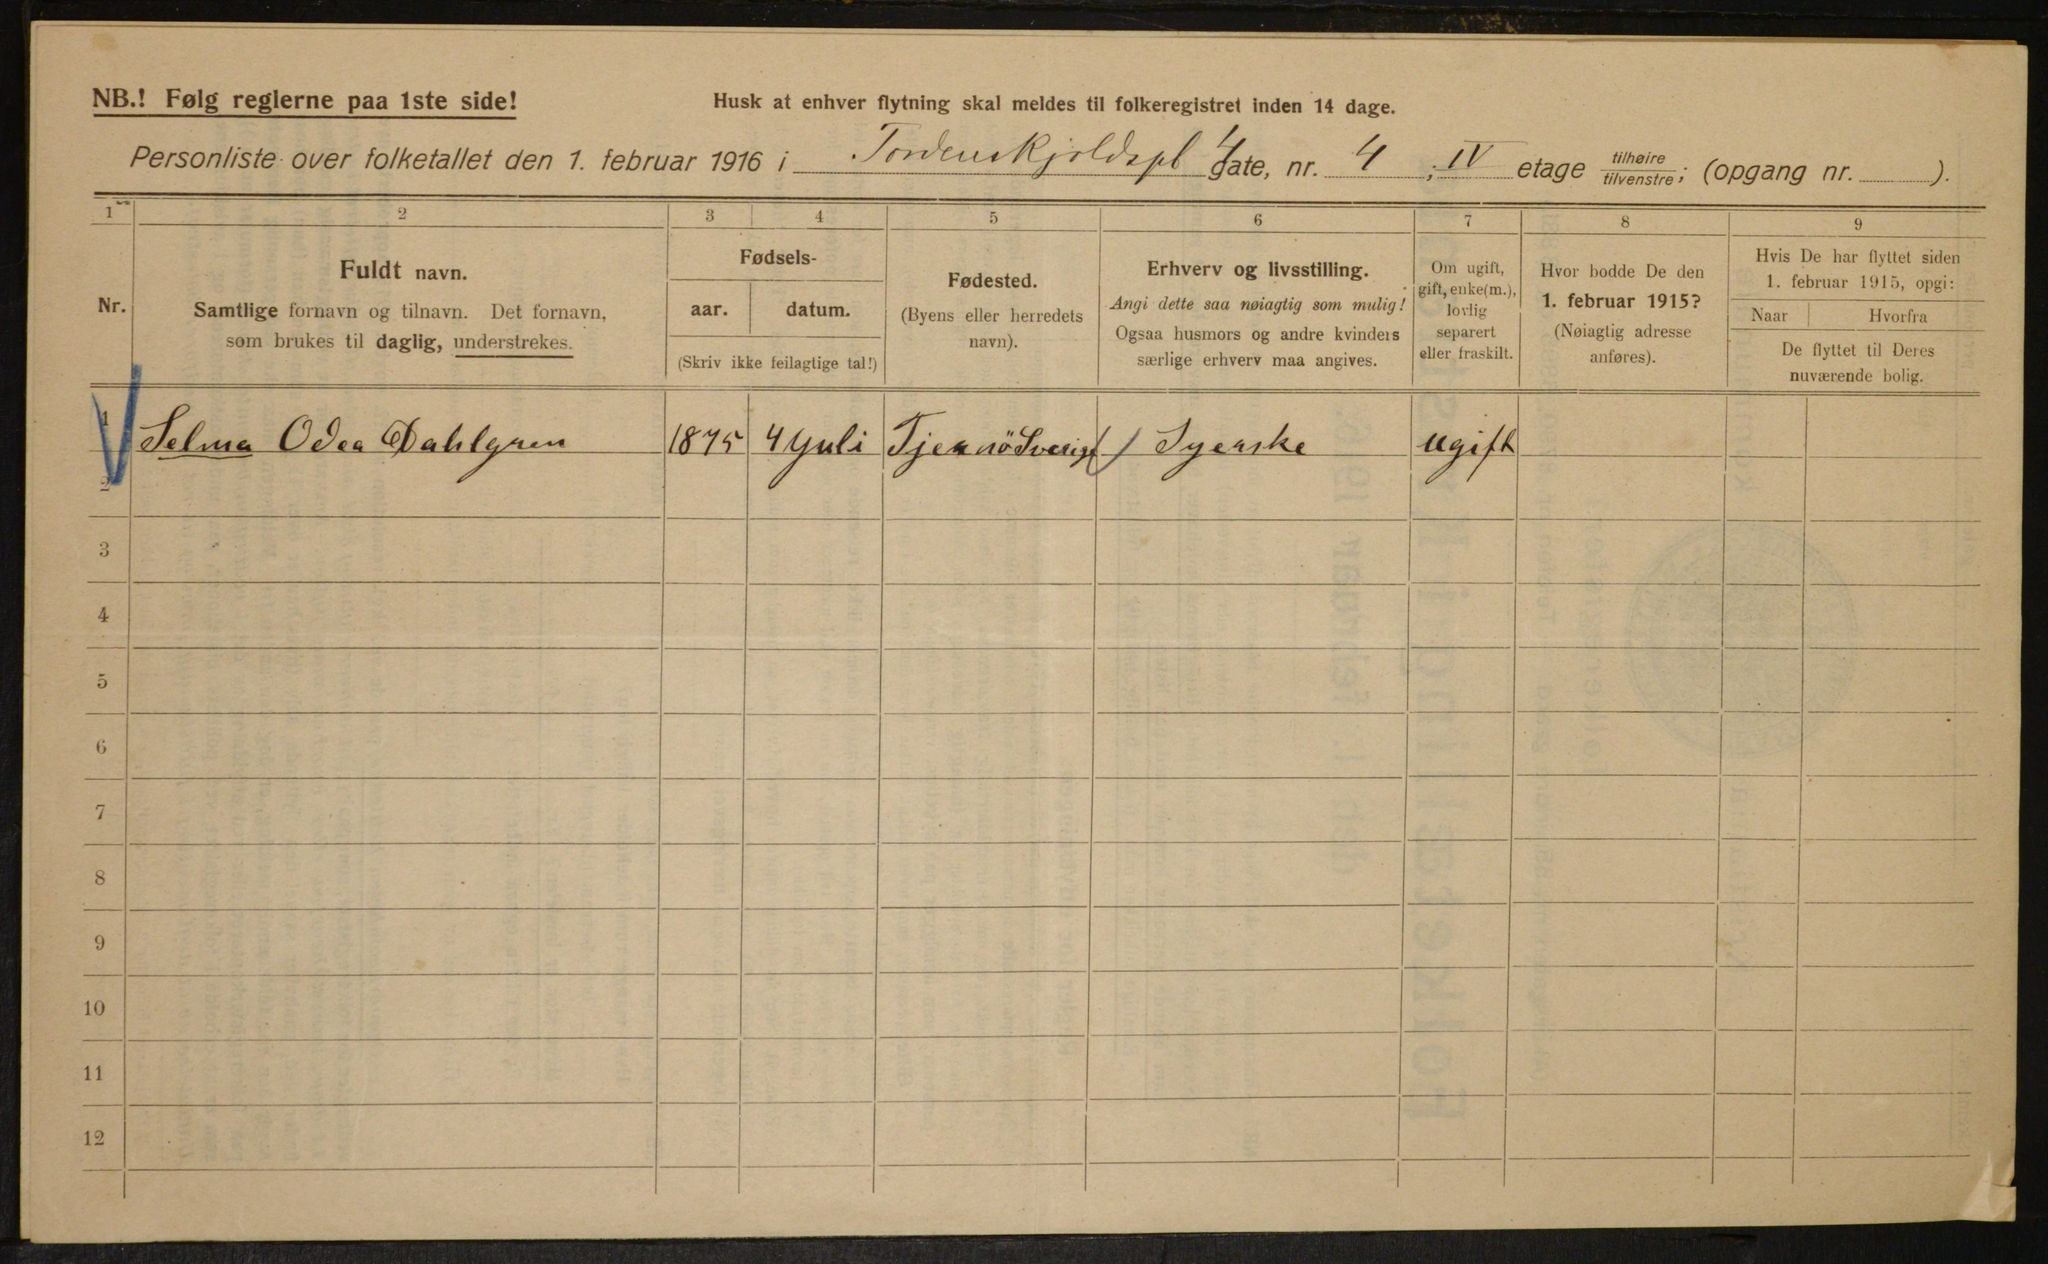 NB.! Følg reglerne paa 1ste side!
Husk at enhver flytning skal meldes til folkeregistret inden 14 dage.
Personliste over folketallet den 1. februar 1916 i Tordenskjoldspl 4 gate, nr. 4, IV etage tilhøire/tilvenstre; (opgang nr. ).
1 2 3 4 5 6 7 8 9
Nr.
Fuldt navn.
Samtlige fornavn og tilnavn. Det fornavn,
som brukes til daglig, understrekes.
Fødsels-
aar. datum.
(Skriv ikke feilagtige tal!)
Fødested.
(Byens eller herredets
navn).
Erhverv og livsstilling.
Angi dette saa nøiagtig som mulig!
Ogsaa husmors og andre kvinders
særlige erhverv maa angives.
Om ugift,
gift, enke(m.),
lovlig
separert
eller fraskilt.
Hvor bodde De den
1. februar 1915?
(Nøiagtig adresse
anføres).
Hvis De har flyttet siden
1. februar 1915, opgi:
Naar Hvorfra
De flyttet til Deres
nuværende bolig.
1 Selma Odea Dahlgren 1875 4 Juli Tjernö Sverige Syerske ugift
2
3
4
5
6
7
8
9
10
11
12